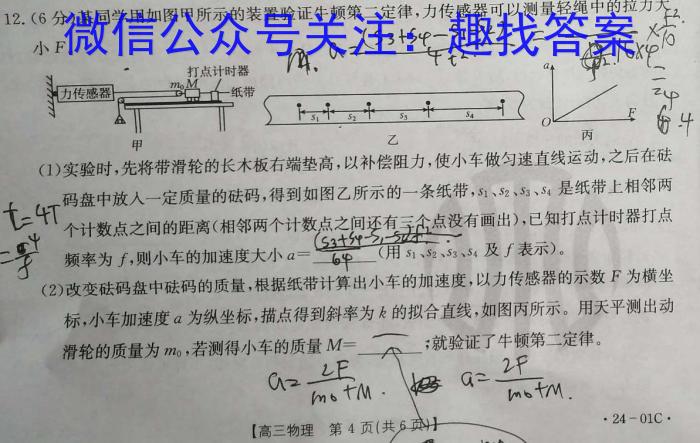 12.(6分)某同学用如图甲所示的装置验证牛顿第二定律,力传感器可以测量轻绳中的拉力大
小F
微信公众号关注：趣找答案
打点计时器
力传感器
m₀
M
纸带
甲
s₁
s₂
s₃
s₄
乙
a
O
F
丙
(1)实验时,先将带滑轮的长木板右端垫高,以补偿阻力,使小车做匀速直线运动,之后在砝
码盘中放入一定质量的砝码,得到如图乙所示的一条纸带,s₁、s₂、s₃、s₄ 是纸带上相邻两
t=4T
个计数点之间的距离(相邻两个计数点之间还有三个点没有画出),已知打点计时器打点
频率为 f,则小车的加速度大小 a= (s₃+s₄-s₁-s₂)f² / 64 (用 s₁、s₂、s₃、s₄ 及 f 表示)。
=4/f
(2)改变砝码盘中砝码的质量,根据纸带计算出小车的加速度,以力传感器的示数 F 为横坐
标,小车加速度 a 为纵坐标,描点得到斜率为 k 的拟合直线,如图丙所示。用天平测出动
滑轮的质量为 m₀,若测得小车的质量 M=______;就验证了牛顿第二定律。
a=2F/(m₀+M). a=2F/(m₀+M).
【高三物理 第 4 页(共 6 页)】
·24-01C·